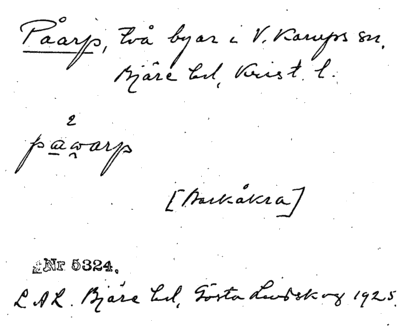 Påarp, två byar i V. Karups sn,
Bjäre hd, Krist. l.
2
pawarp
[Barkåkra]
Nr 5324.
LAL. Bjäre hd, Gösta Lindskog 1925.